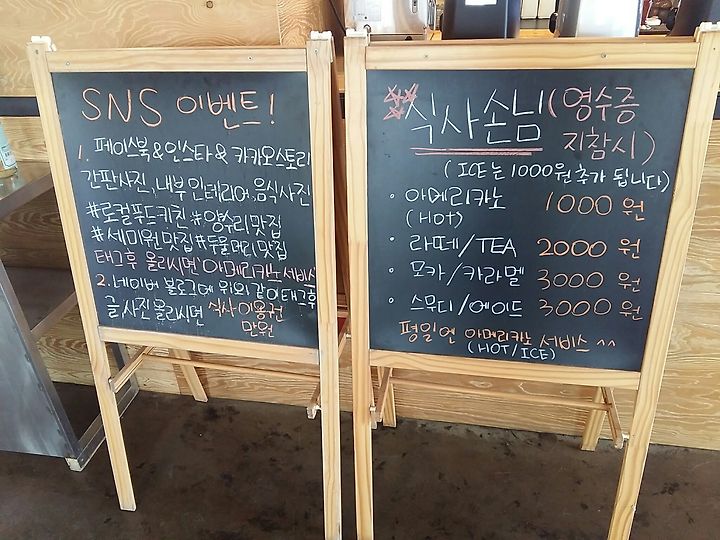 SNS 이벤트!
1. 페이스북&인스타&카카오스토리
간판사진, 내부인테리어, 음식사진
#로컬푸드키친 #양수리맛집
#세미원맛집 #두물머리맛집
태그후 올리시면 '아메리카노 서비스'
2. 네이버 블로그에 위와 같이 태그후
글, 사진 올리시면 식사이용권
만원
식사손님 (영수증
지참시)
(ICE는 1000원 추가 됩니다)
· 아메리카노 1000원
(HOT)
· 라떼/TEA 2000원
· 모카/카라멜 3000원
· 스무디/에이드 3000원
평일엔 아메리카노 서비스 ^^
(HOT/ICE)